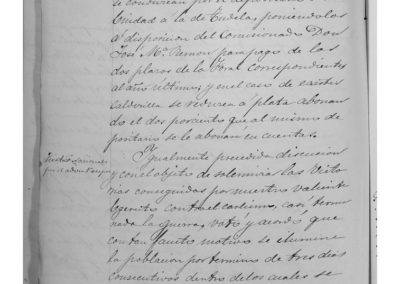 se conducirán por el depositario
bridad a la de Tudela, poniendolos
a disposicion del Comisionado Don
José Mª Ramon para pago de las
dos plazos de la foral correspondientes
al año ultimo, y en el caso de existir
calderilla se reducira a plata abonan
do el dos por ciento que al mismo de
positario se le abonará en cuentas.
Igualmente precedida discusion
y con el objeto de solemnizar las Victo
rias conseguidas por nuestro valiente
Egercito contra el carlismo, casi termi
nada la guerra, votó y acordó que
con tan fausto motivo se ilumine
la poblacion por termino de tres dias
consecutivos dentro de los cuales se